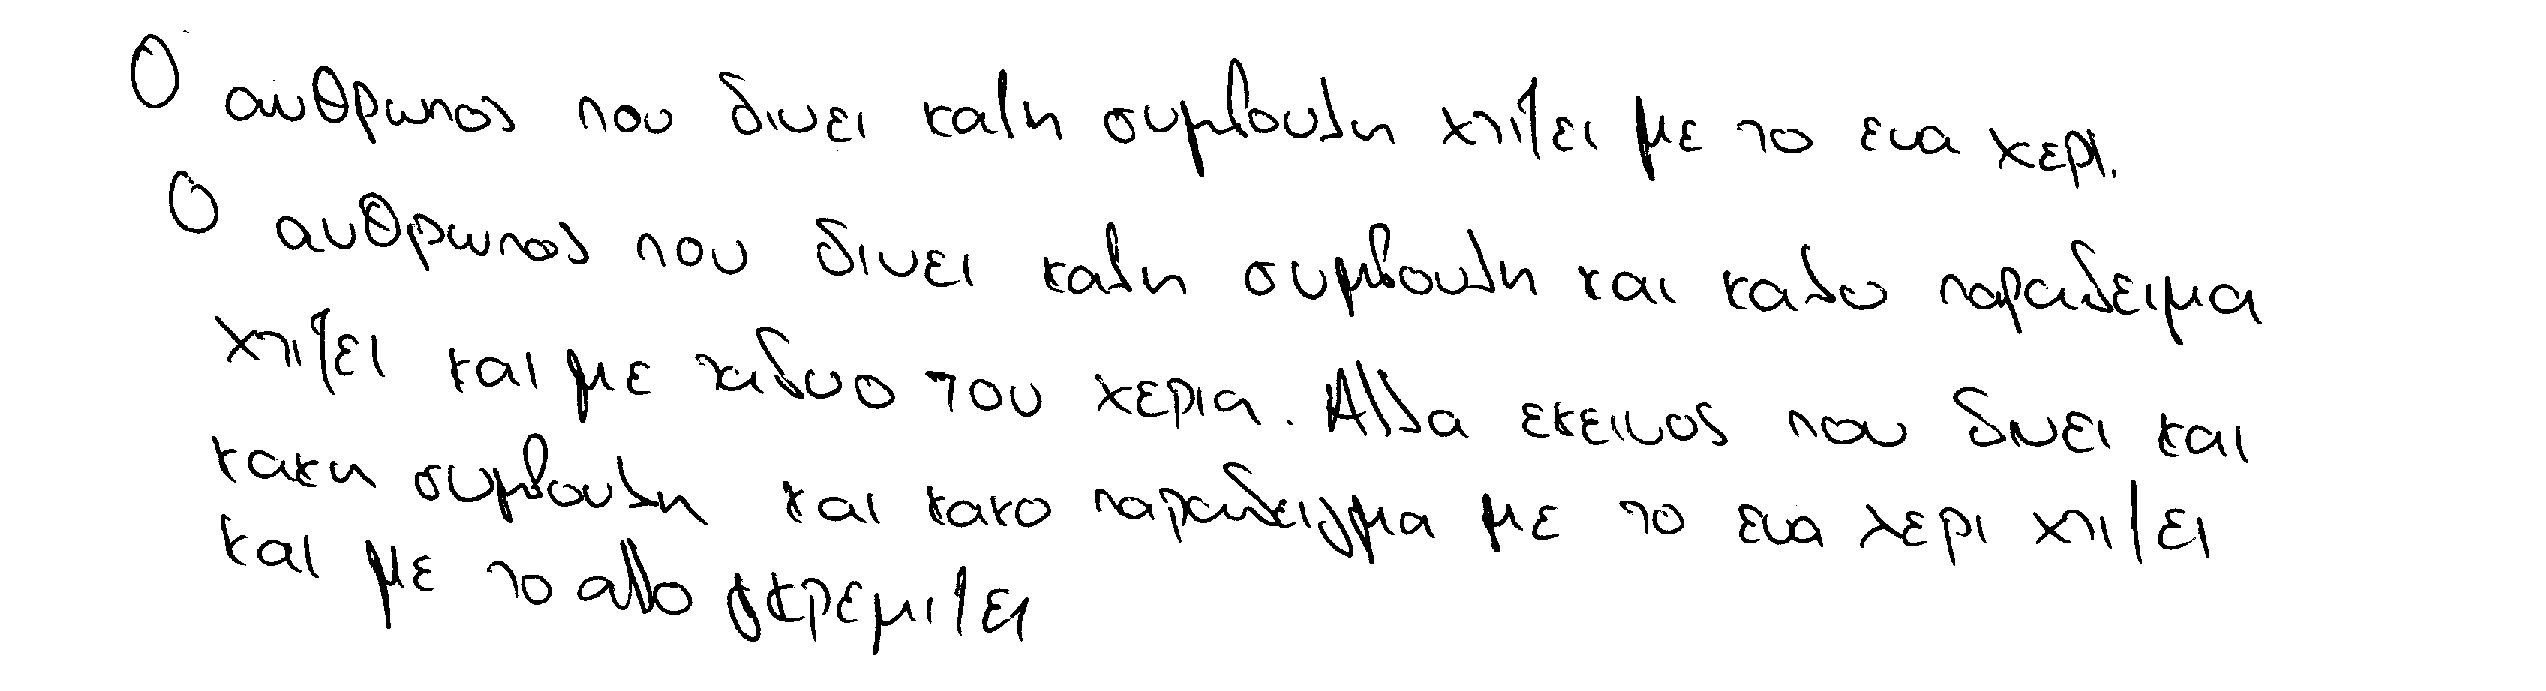 Ο ανθρωπος που δινει καλη συμβουλη χτιζει με το ενα χερι.
Ο ανθρωπος που δινει καλη συμβουλη και καλο παραδειμα
χτιζει και με τα δυο του χερια. Αλλα εκεινος που δινει και
κακη συμβουλη και κακο παραδειγμα με το ενα χερι χτιζει
και με το αλλο γκρεμιζει